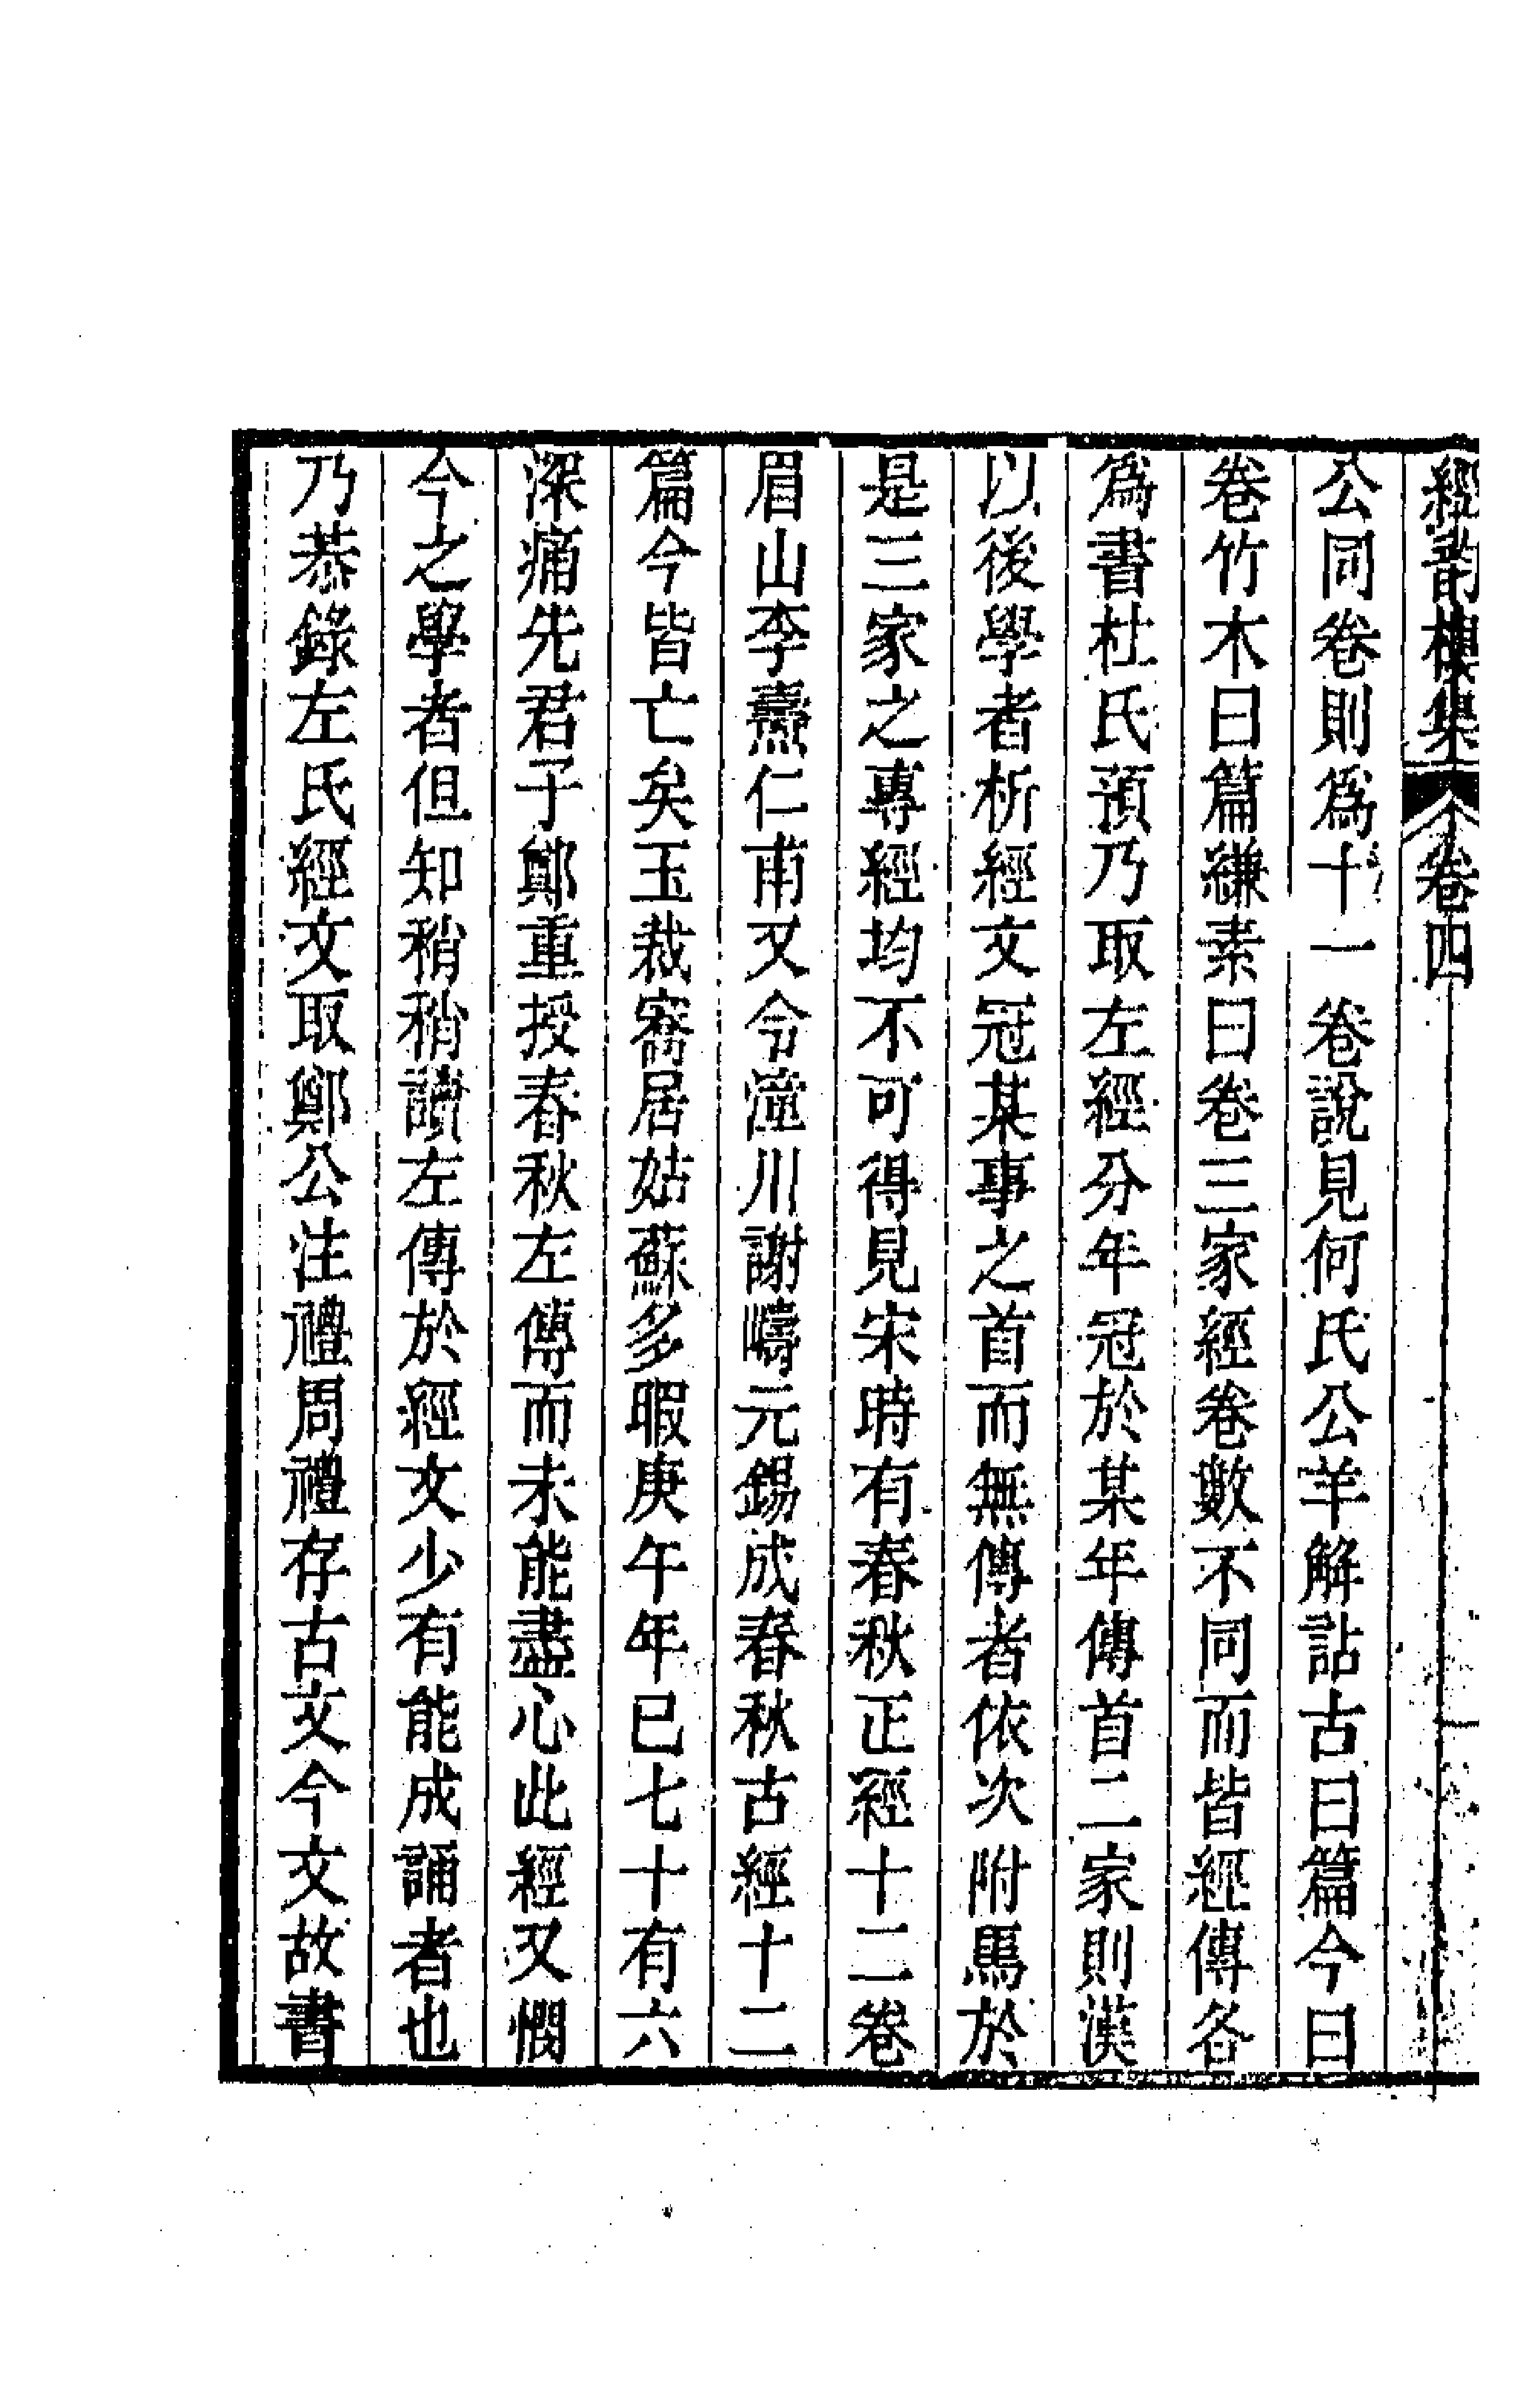 經韵樓集 卷四 一
公同卷則爲十一卷說見何氏公羊解詁古曰篇今曰
卷竹木曰篇縑素曰卷三家經卷數不同而皆經傳各
爲書杜氏預乃取左經分年冠於某年傳首二家則漢
以後學者析經文冠某事之首而無傳者依次附焉於
是三家之專經均不可得見宋時有春秋正經十二卷
眉山李燾仁甫又令潼川謝疇元錫成春秋古經十二
篇今皆亡矣玉裁寓居姑蘇多暇庚午年已七十有六
深痛先君子鄭重授春秋左傳而未能盡心此經又憫
今之學者但知稍稍讀左傳於經文少有能成誦者也
乃恭錄左氏經文取鄭公注禮周禮存古文今文故書